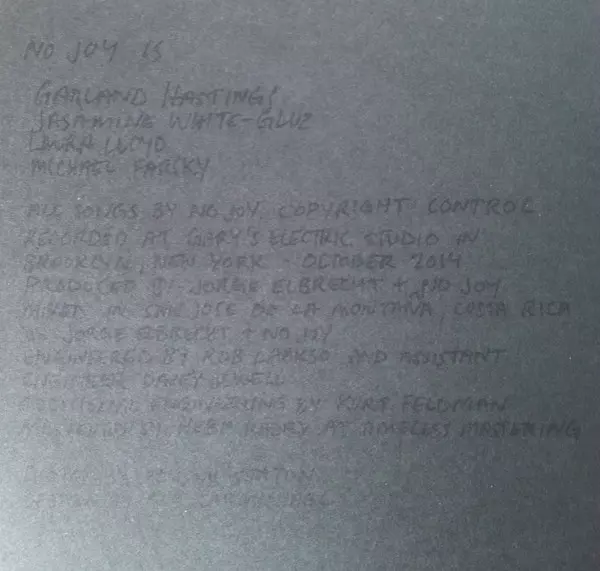 NO JOY IS
GARLAND HASTINGS
JASAMINE WHITE-GLUZ
LAURA LLOYD
MICHAEL FARSKY
ALL SONGS BY NO JOY, COPYRIGHT CONTROL
RECORDED AT GARY'S ELECTRIC STUDIO IN
BROOKLYN, NEW YORK - OCTOBER 2014
PRODUCED BY JORGE ELBRECHT + NO JOY
MIXED IN SAN JOSE DE LA MONTANA, COSTA RICA
BY JORGE ELBRECHT + NO JOY
ENGINEERED BY ROB LAAKSO AND ASSISTANT
ENGINEER DAVEY JEWELL
ADDITIONAL ENGINEERING BY KURT FELDMAN
MASTERED BY HEBA KADRY AT TIMELESS MASTERING